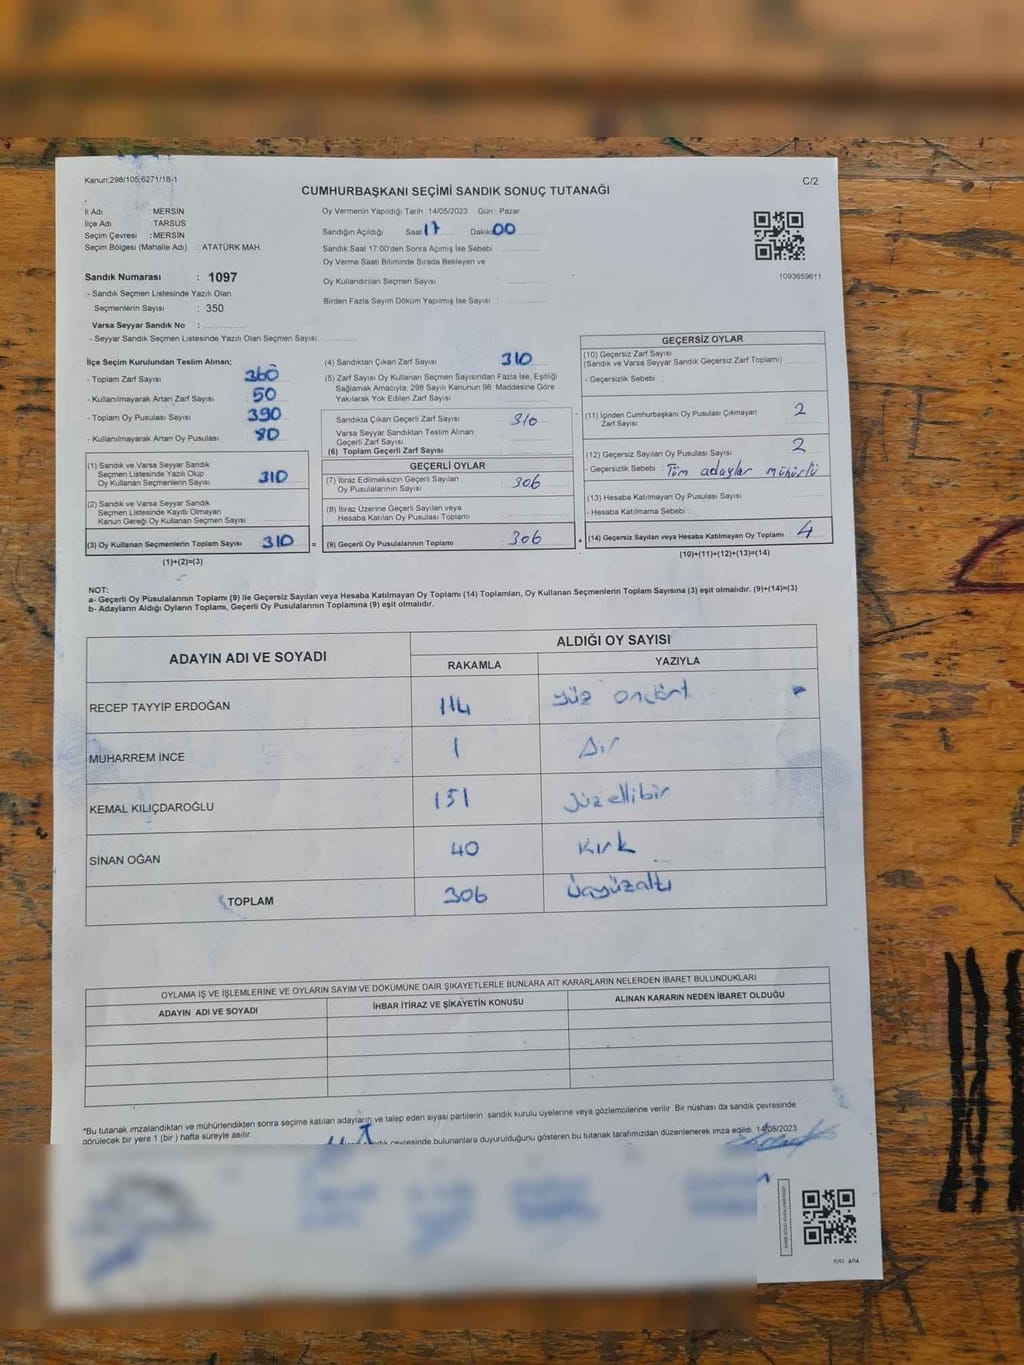 Kanun:298/105,6271/18-1
C/2
CUMHURBAŞKANI SEÇİMİ SANDIK SONUÇ TUTANAĞI
İl Adı : MERSİN
İlçe Adı : TARSUS
Seçim Çevresi : MERSİN
Seçim Bölgesi (Mahalle Adı) : ATATÜRK MAH.
Sandık Numarası : 1097
- Sandık Seçmen Listesinde Yazılı Olan
Seçmenlerin Sayısı : 350
Varsa Seyyar Sandık No :
- Seyyar Sandık Seçmen Listesinde Yazılı Olan Seçmen Sayısı:
Oy Vermenin Yapıldığı Tarih :14/05/2023 Gün : Pazar
Sandığın Açıldığı Saat 17 Dakika 00
Sandık Saat 17:00'den Sonra Açımış İse Sebebi
Oy Verme Saati Bitiminde Sırada Bekleyen ve
Oy Kullandırılan Seçmen Sayısı :
Birden Fazla Sayım Döküm Yapılmış İse Sayısı :
1093659611
İlçe Seçim Kurulundan Teslim Alınan;
- Toplam Zarf Sayısı 360
- Kullanılmayarak Artan Zarf Sayısı 50
- Toplam Oy Pusulası Sayısı 390
- Kullanılmayarak Artan Oy Pusulası 80
(1) Sandık ve Varsa Seyyar Sandık
Seçmen Listesinde Yazılı Olup
Oy Kullanan Seçmenlerin Sayısı 310
(2) Sandık ve Varsa Seyyar Sandık
Seçmen Listesinde Kayıtlı Olmayan
Kanun Gereği Oy Kullanan Seçmen Sayısı
(3) Oy Kullanan Seçmenlerin Toplam Sayısı 310 =
(1)+(2)=(3)
(4) Sandıktan Çıkan Zarf Sayısı 310
(5) Zarf Sayısı Oy Kullanan Seçmen Sayısından Fazla İse, Eşitliği
Sağlamak Amacıyla; 298 Sayılı Kanunun 98. Maddesine Göre
Yakılarak Yok Edilen Zarf Sayısı
Sandıkta Çıkan Geçerli Zarf Sayısı 310
Varsa Seyyar Sandıktan Teslim Alınan
Geçerli Zarf Sayısı
(6) Toplam Geçerli Zarf Sayısı
GEÇERLİ OYLAR
(7) İtiraz Edilmeksizin Geçerli Sayılan
Oy Pusulalarının Sayısı 306
(8) İtiraz Üzerine Geçerli Sayılan veya
Hesaba Katılan Oy Pusulası Toplamı
(9) Geçerli Oy Pusulalarının Toplamı 306 +
GEÇERSİZ OYLAR
(10) Geçersiz Zarf Sayısı
(Sandık ve Varsa Seyyar Sandık Geçersiz Zarf Toplamı)
- Geçersizlik Sebebi :
(11) İçinden Cumhurbaşkanı Oy Pusulası Çıkmayan
Zarf Sayısı 2
(12) Geçersiz Sayılan Oy Pusulası Sayısı 2
- Geçersizlik Sebebi : Tüm adaylar mühürlü
(13) Hesaba Katılmayan Oy Pusulası Sayısı
- Hesaba Katılmama Sebebi :
(14) Geçersiz Sayılan veya Hesaba Katılmayan Oy Toplamı 4
(10)+(11)+(12)+(13)=(14)
NOT:
a- Geçerli Oy Pusulalarının Toplamı (9) ile Geçersiz Sayılan veya Hesaba Katılmayan Oy Toplamı (14) Toplamları, Oy Kullanan Seçmenlerin Toplam Sayısına (3) eşit olmalıdır. (9)+(14)=(3)
b- Adayların Aldığı Oyların Toplamı, Geçerli Oy Pusulalarının Toplamına (9) eşit olmalıdır.
ADAYIN ADI VE SOYADI
ALDIĞI OY SAYISI
RAKAMLA YAZIYLA
RECEP TAYYİP ERDOĞAN 114 yüz ondört
MUHARREM İNCE 1 Bir
KEMAL KILIÇDAROĞLU 151 Yüzellibir
SİNAN OĞAN 40 Kırk
TOPLAM 306 Üçyüzaltı
OYLAMA İŞ VE İŞLEMLERİNE VE OYLARIN SAYIM VE DÖKÜMÜNE DAİR ŞİKAYETLERLE BUNLARA AİT KARARLARIN NELERDEN İBARET BULUNDUKLARI
ADAYIN ADI VE SOYADI İHBAR İTİRAZ VE ŞİKAYETİN KONUSU ALINAN KARARIN NEDEN İBARET OLDUĞU
*Bu tutanak imzalandıktan ve mühürlendikten sonra seçime katılan adayların ve talep eden siyasi partilerin sandık kurulu üyelerine veya gözlemcilerine verilir. Bir nüshası da sandık çevresinde
görülecek bir yere 1 (bir) hafta süreyle asılır.
çevresinde bulunanlara duyurulduğunu gösteren bu tutanak tarafımızdan düzenlenerek imza edildi. 14/05/2023